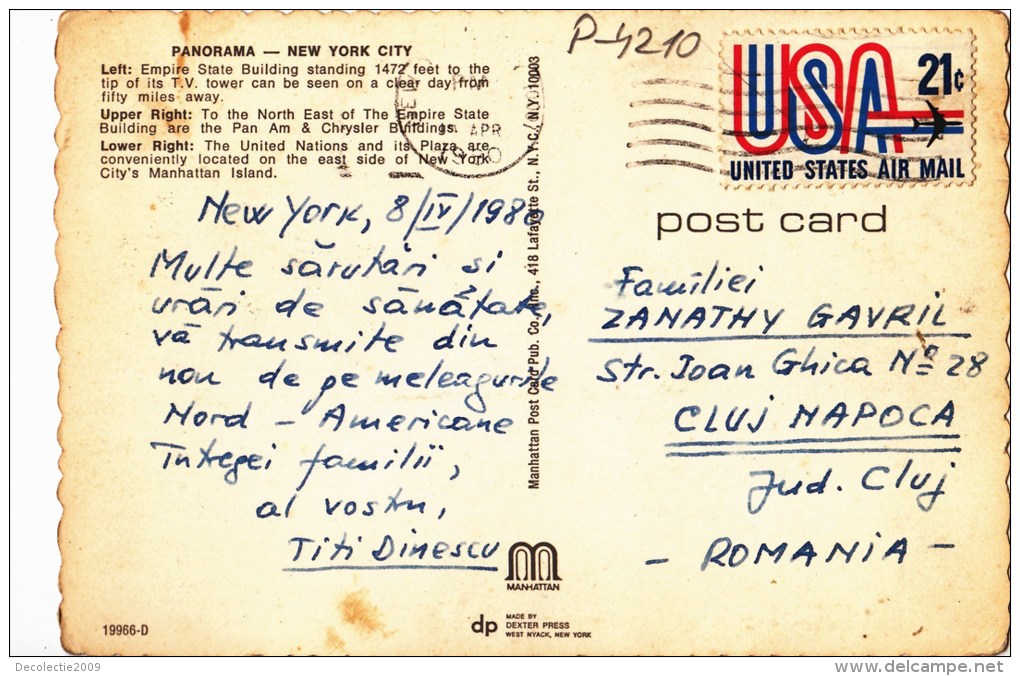 PANORAMA — NEW YORK CITY
Left: Empire State Building standing 1472 feet to the
tip of its T.V. tower can be seen on a clear day from
fifty miles away.
Upper Right: To the North East of The Empire State
Building are the Pan Am & Chrysler Buildings.
Lower Right: The United Nations and its Plaza are
conveniently located on the east side of New York
City's Manhattan Island.
New York, 8/IV/1980
Multe sărutări si
urări de sănătate,
vă transmite din
nou de pe meleagurile
Nord - Americane
Întregei familii,
al vostru,
Titi Dinescu
19966-D
Manhattan Post Card Pub. Co., Inc., 418 Lafayette St., N.Y.C., N.Y. 10003
MANHATTAN
dp
MADE BY
DEXTER PRESS
WEST NYACK, NEW YORK
P-4210
APR
USA 21c
UNITED STATES AIR MAIL
post card
Familiei
ZANATHY GAVRIL
str. Ioan Ghica Nº 28
CLUJ NAPOCA
Jud. Cluj
- ROMANIA -
Decolectie2009
www.delcampe.net